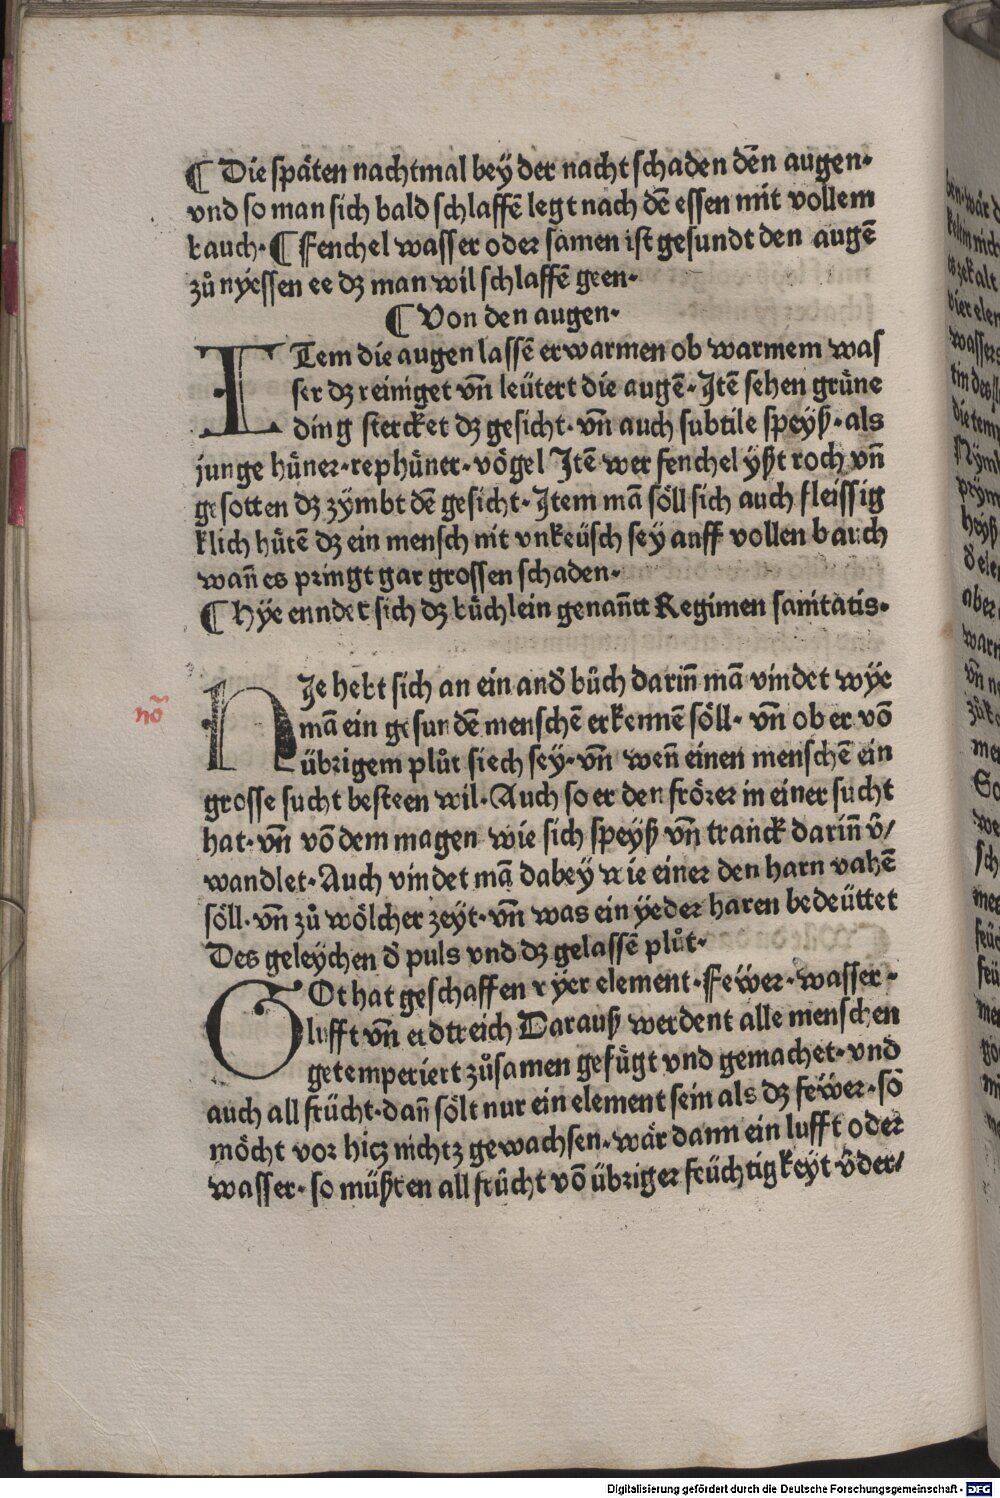 ¶ Die späten nachtmal bey der nacht schaden dẽn augen·
vnd so man sich bald schlaffẽ legt nach dẽ essen mit vollem
bauch· ¶ Fenchel wasser oder samen ist gesundt den augẽ
zů nyessen ee dz man wil schlaffẽ geen·
¶ Von den augen·
ITem die augen lassẽ erwarmen ob warmem was
ser dz reiniget vñ leütert die augẽ· Itẽ sehen grüne
ding stercket dz gesicht· vñ auch subtile speyß· als
junge hüner· rephüner· vögel Itẽ wer fenchel yßt roch vñ
gesotten dz zymbt dẽ gesicht· Item mã söll sich auch fleissig
klich hütẽ dz ein mensch nit vnkeüsch sey auff vollen bauch
wañ es pringt gar grossen schaden·
¶ Hye enndet sich dz büchlein genañtt Regimen sanitatis·
HIe hebt sich an ein and̃ bůch dariñ mã vindet wye
mã ein gesundẽ menschẽ erkennẽ söll· vñ ob er võ
übrigem plůt siech sey· vñ weñ einen menschẽ ein
grosse sucht besteen wil· Auch so er den frörer in einer sucht
hat· vñ võ dem magen wie sich speyß vñ tranck dariñ ṽ/
wandlet· Auch vindet mã dabey wie einer den harn vahẽ
söll· vñ zů wölcher zeyt· vñ was ein yeder haren bedeüttet
Des geleychen d̃ puls vnd dz gelassẽ plůt·
GOt hat geschaffen vyer element· Fewer· wasser·
lufft vñ erdtreich Darauß werdent alle menschen
getemperiert zůsamen gefügt vnd gemachet· vnd
auch all frücht· dañ sölt nur ein element sein als dz fewer· so
möcht vor hicz nichtz gewachsen· wär dann ein lufft oder
wasser· so müßten all frücht võ übriger früchtigkeyt ṽder/
nõ
ben· wär d
Digitalisierung gefördert durch die Deutsche Forschungsgemeinschaft - DFG